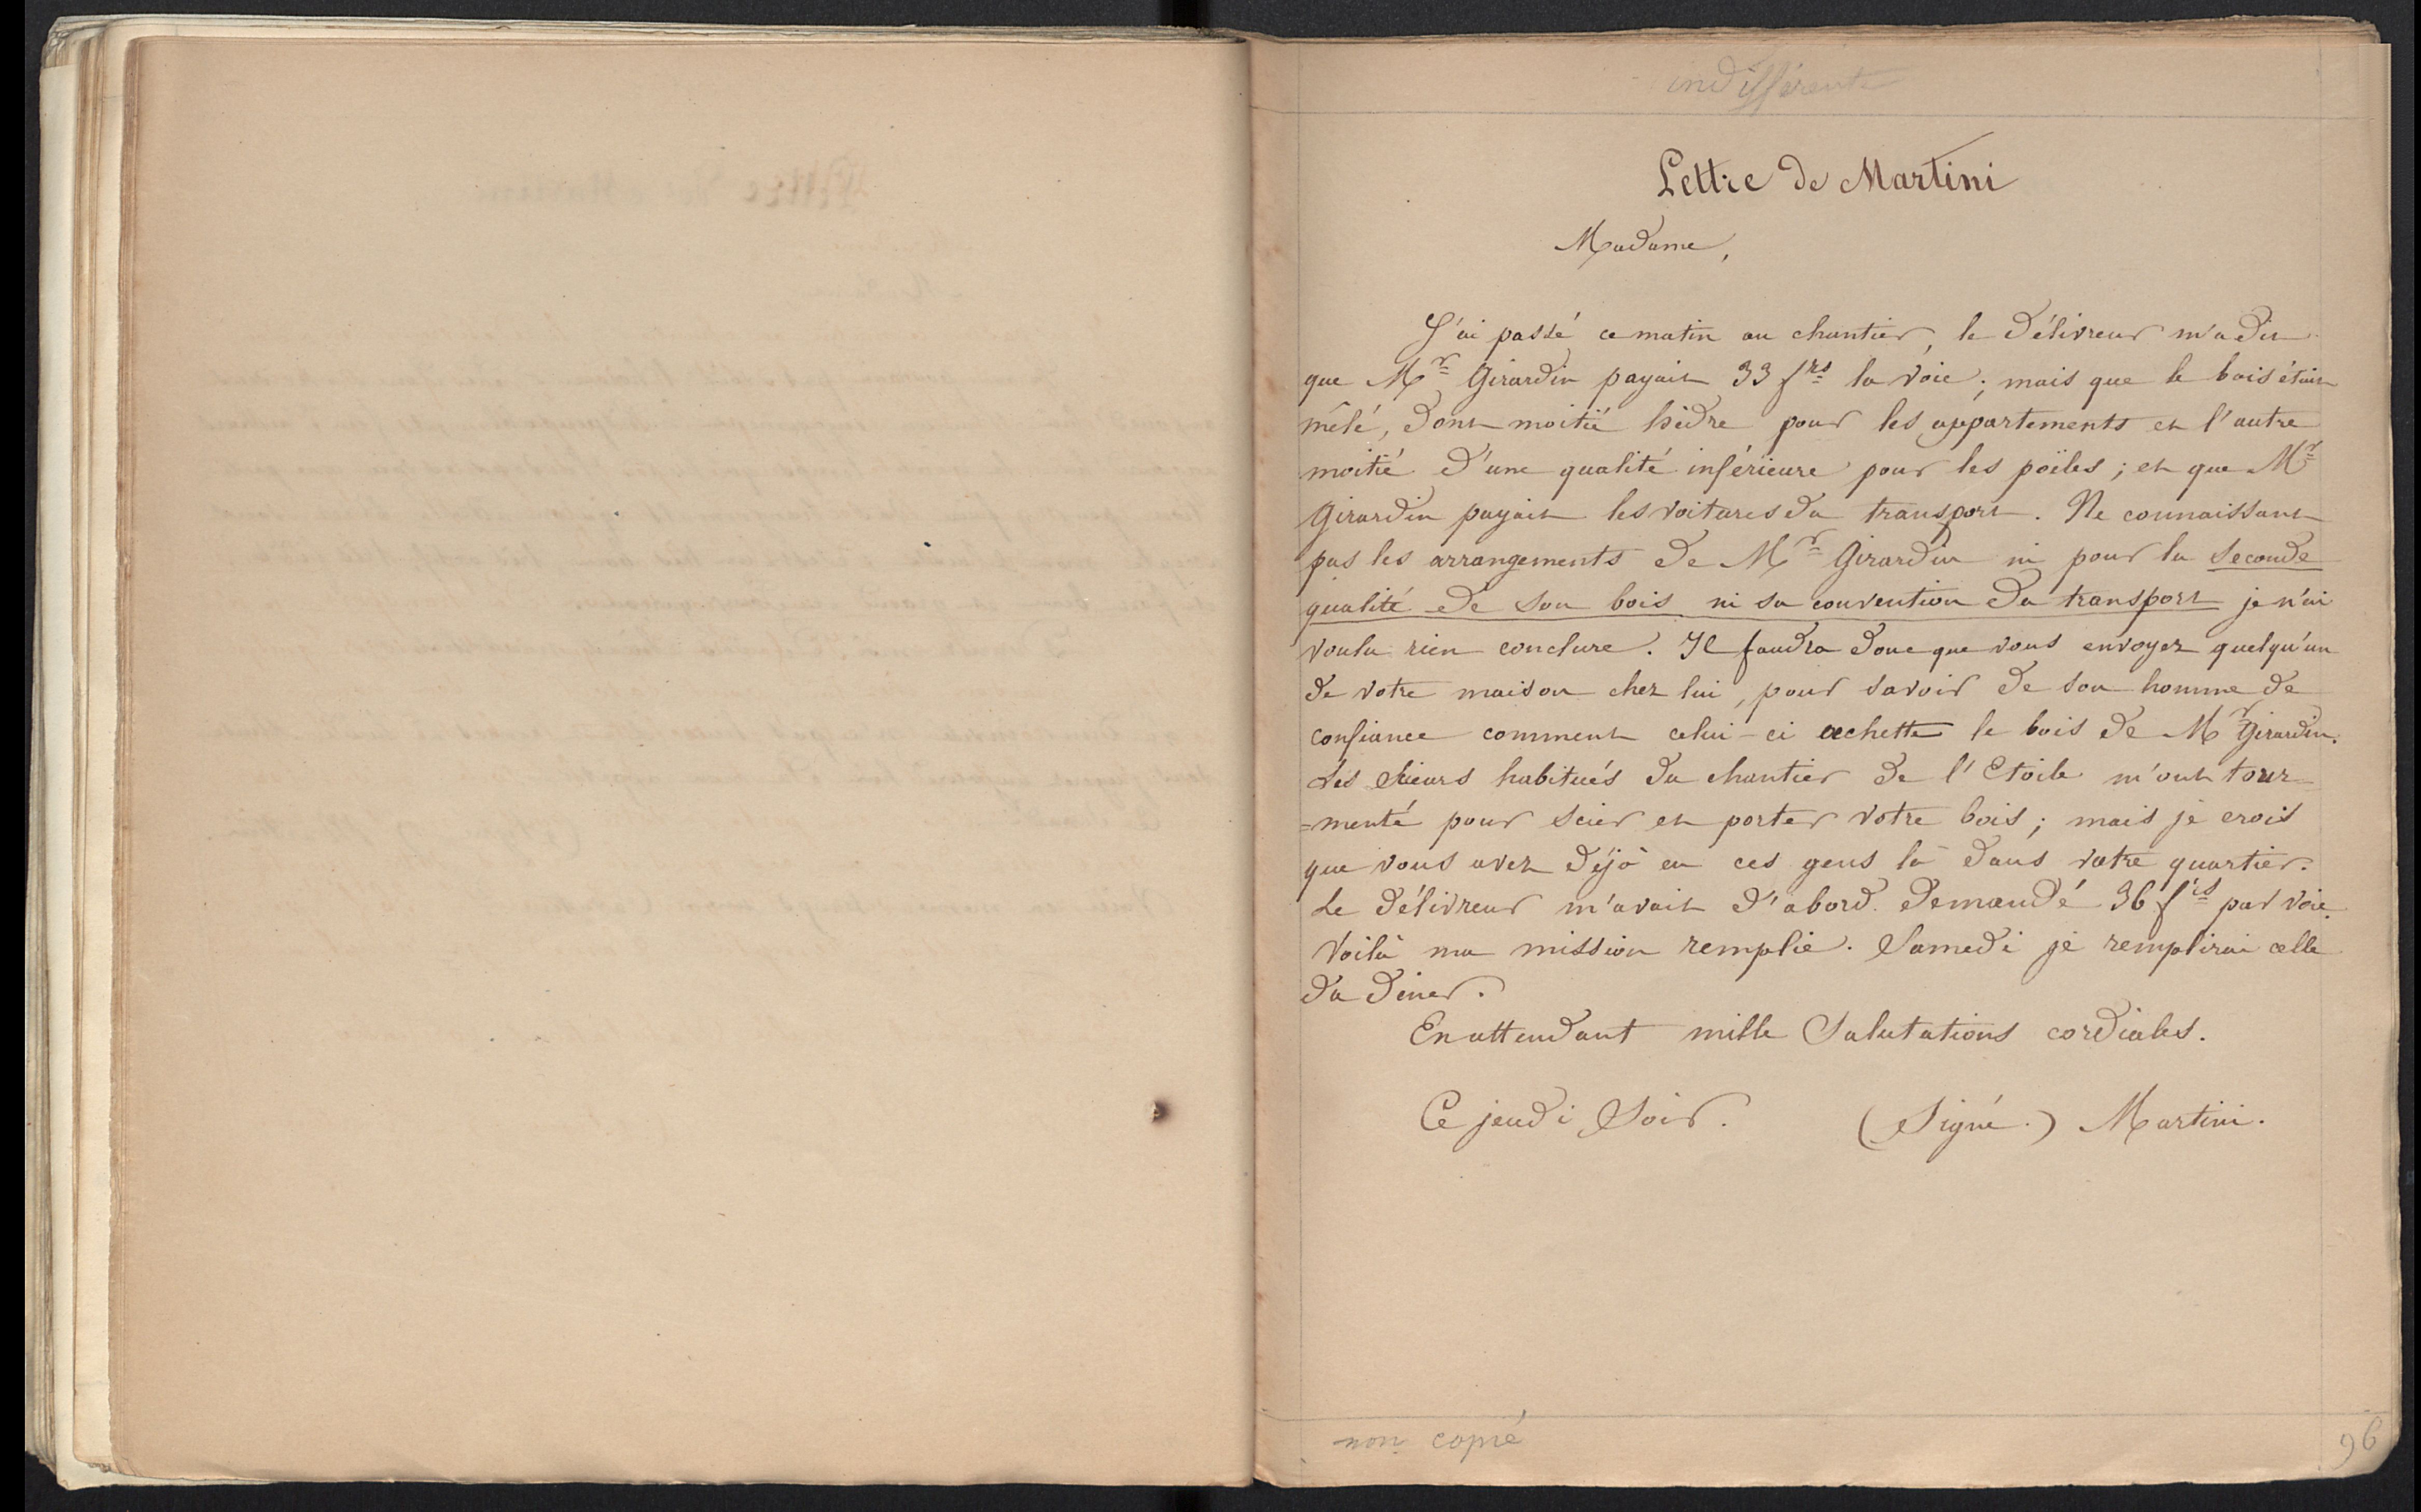 indifférente
Lettre de Martini
Madame,
J'ai passé ce matin au chantier, le délivreur m'a dit
que Mr Girardin payait 33 frs la voie ; mais que le bois était
mêlé, dont moitié hêdre pour les appartements et l'autre
moitié d'une qualité inférieure pour les poëles ; et que Mr
Girardin payait les voitures du transport. Ne connaissant
pas les arrangements de Mr Girardin ni pour la seconde
qualité de son bois ni sa convention du transport je n'ai
voulu rien conclure. Il faudra donc que vous envoyez quelqu'un
de votre maison chez lui, pour savoir de son homme de
confiance comment celui-ci achette le bois de Mr Girardin.
Les scieurs habitués du chantier de l'Etoile m'ont tour-
=menté pour scier et porter votre bois ; mais je crois
que vous avez déjà eu ces gens là dans votre quartier.
Le délivreur m'avait d'abord demandé 36 frs par voie.
Voilà ma mission remplie. Samedi je remplirai celle
du diner.
En attendant mille Salutations cordiales.
Ce jeudi Soir. (Signé.) Martini.
non copié
96